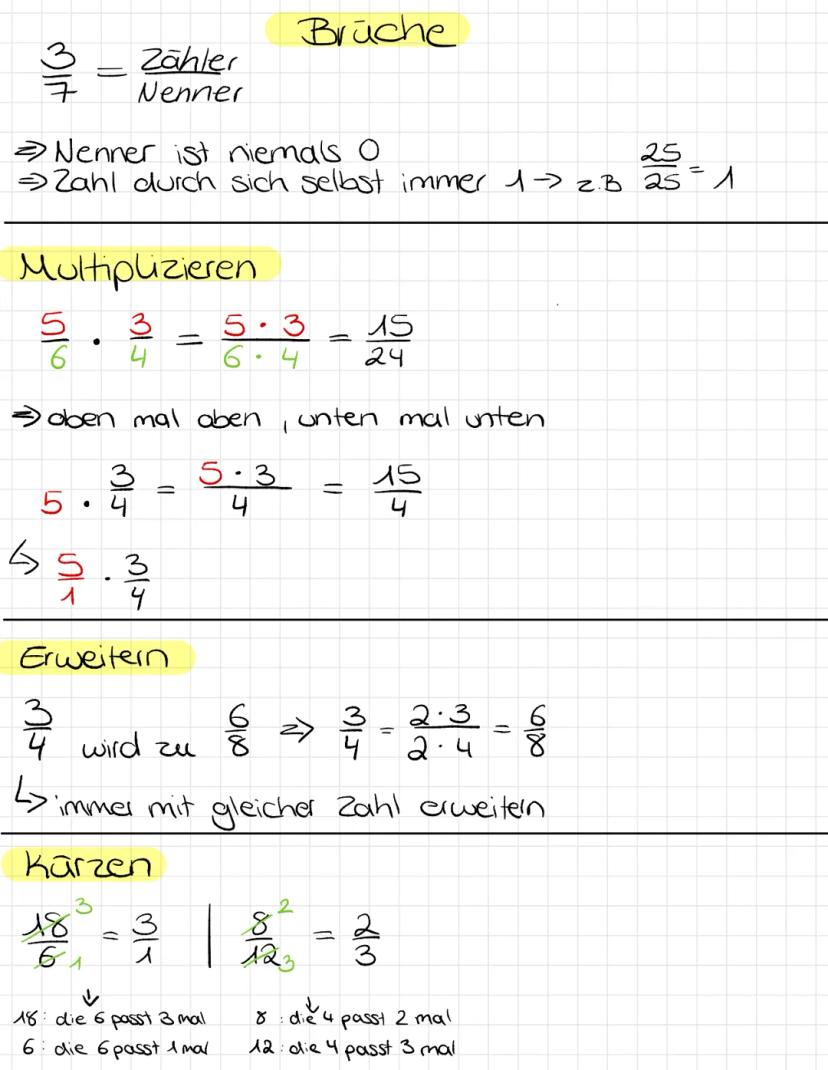 Brüche
3/7 = Zähler/Nenner
⇒ Nenner ist niemals 0
⇒ Zahl durch sich selbst immer 1 → z.B 25/25 = 1
Multiplizieren
5/6 · 3/4 = 5 · 3/6 · 4 = 15/24
⇒ oben mal oben , unten mal unten
5 · 3/4 = 5 · 3/4 = 15/4
↳ 5/1 · 3/4
Erweitern
3/4 wird zu 6/8 ⇒ 3/4 = 2·3/2·4 = 6/8
↳ immer mit gleicher Zahl erweitern
Kürzen
18/6 3/1 = 3/1 | 8/12 2/3 = 2/3
18: die 6 passt 3 mal 8 : die 4 passt 2 mal
6: die 6 passt 1 mal 12: die 4 passt 3 mal